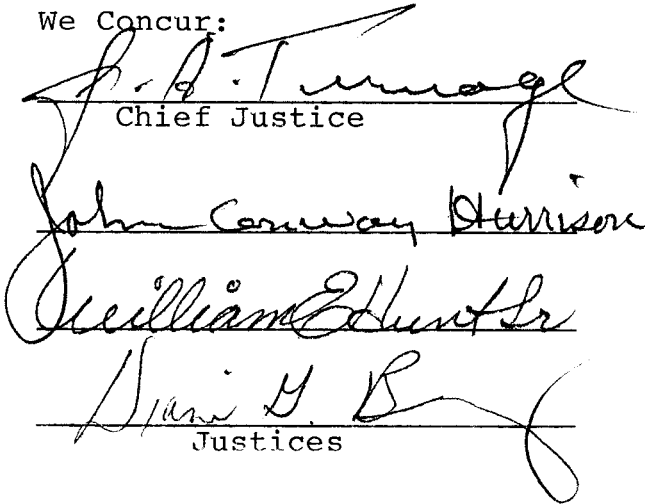 We Concur:
J. A. Turnage
Chief Justice
John Conway Harrison
William E Hunt Sr
Diane G. B
Justices